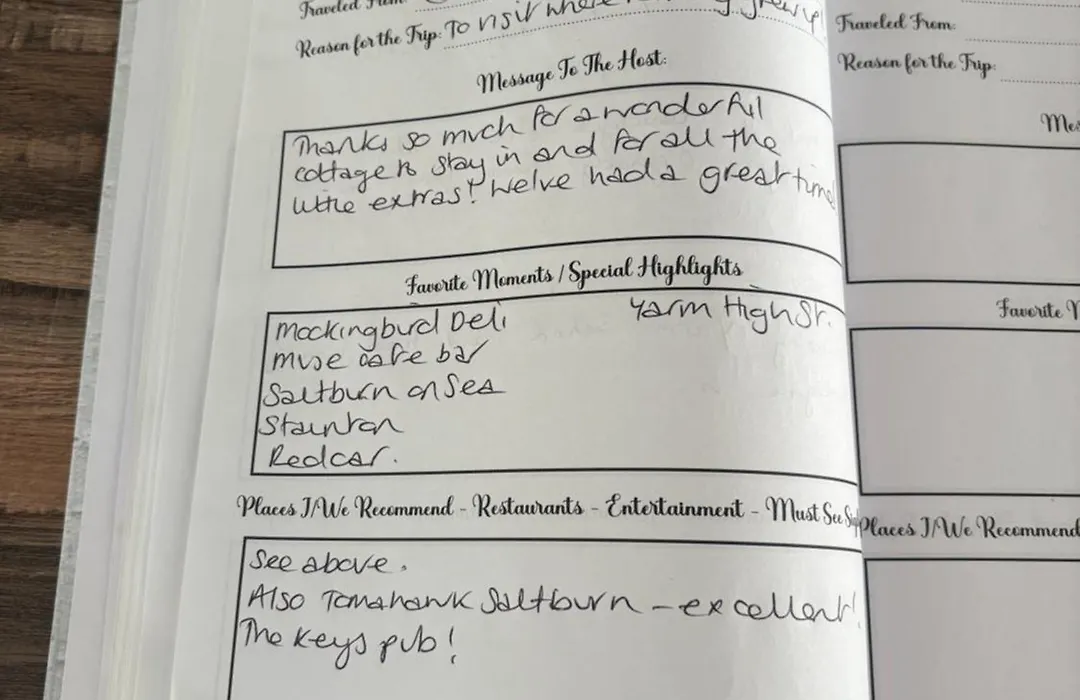 Traveled From:
Reason for the Trip: To visit where
Message To The Host:
Thanks so much for a wonderful
cottage to stay in and for all the
little extras! We've had a great time
Favorite Moments / Special Highlights
Mockingbird Deli
Yarm High St.
Muse cafe bar
Saltburn on Sea
Stainton
Redcar.
Places I/We Recommend - Restaurants - Entertainment - Must See
See above.
Also Tomahawk Saltburn - excellent!
The Keys pub!
Traveled From:
Reason for the Trip:
Favorite
Places I/We Recommend